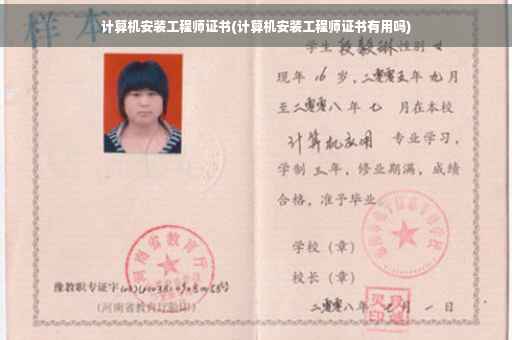 计算机安装工程师证书(计算机安装工程师证书有用吗)
样本
学生段毅琳性别女
现年16岁，二零零五年九月
至二零零八年七月在本校
计算机应用专业学习，
学制三年，修业期满，成绩
合格，准予毕业
学校（章）
校长（章）
二零零八年七月一日
河南省教育厅
豫教职专证字
(河南省教育厅验印)